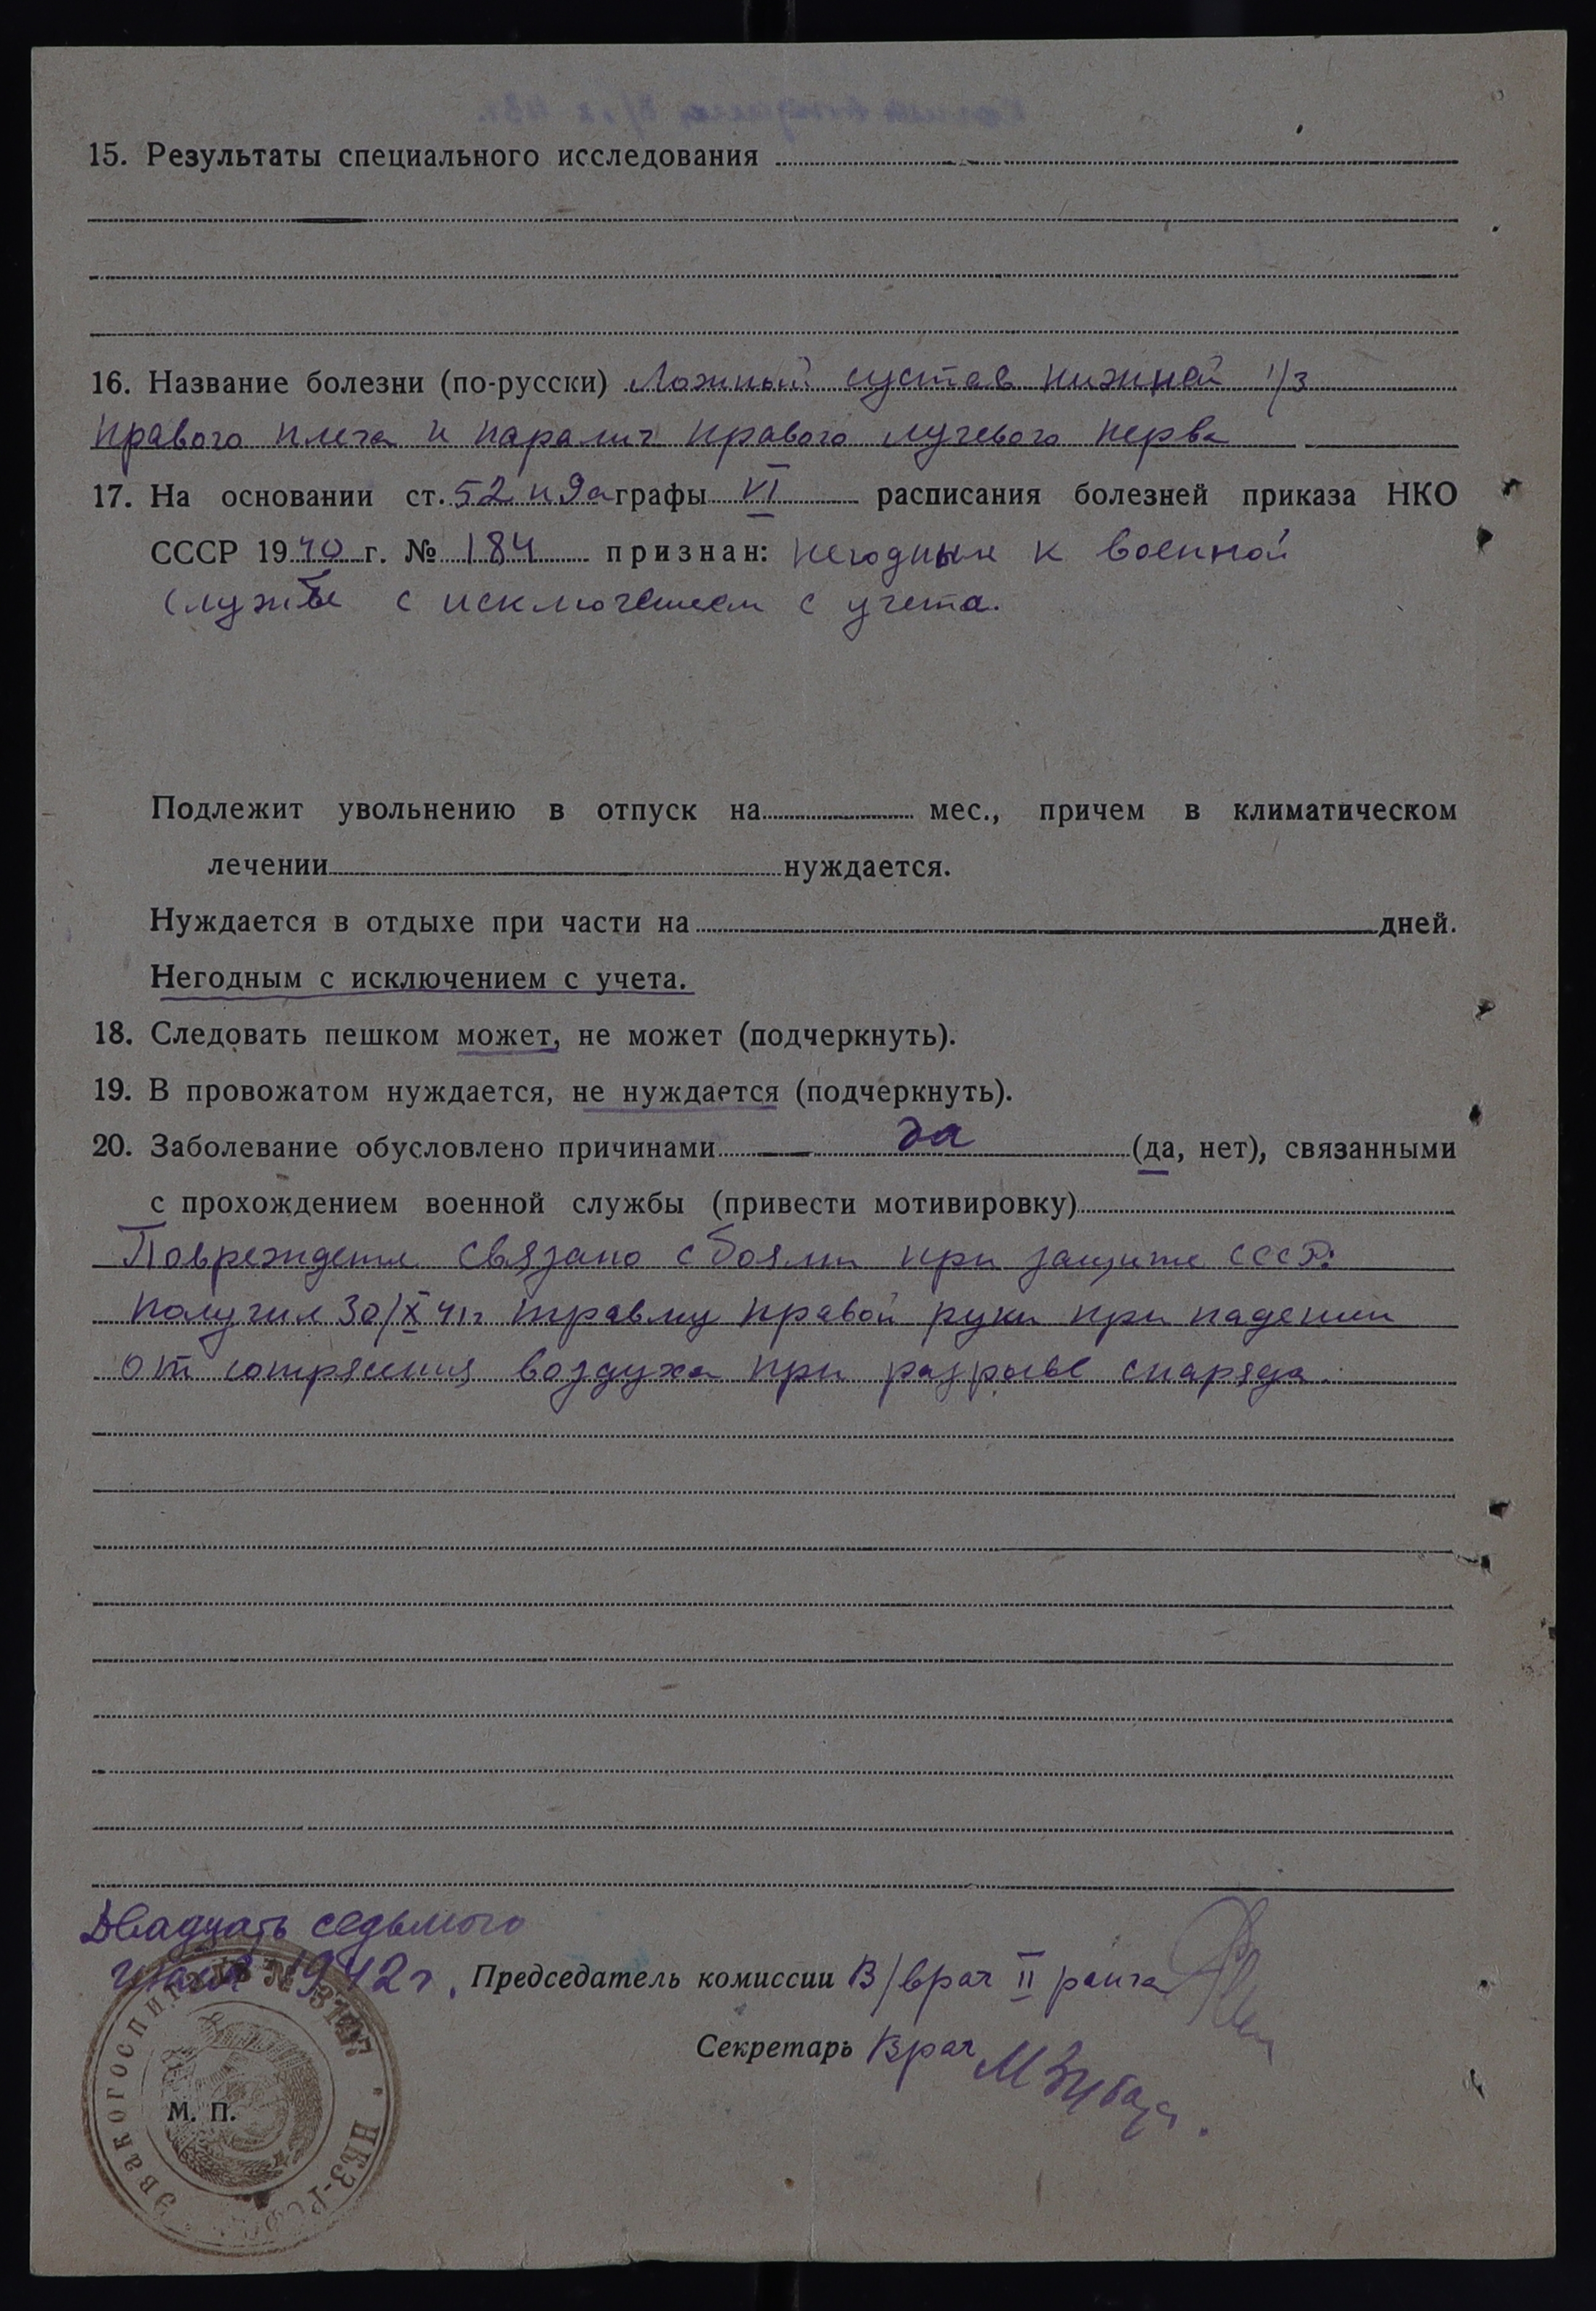 15. Результаты специального исследования
16. Название болезни (по-русски) Ложный сустав нижней 1/3
правого плеча и паралич правого лучевого нерва
17. На основании ст. 52 п 9а графы VI расписания болезней приказа НКО
СССР 1940 г. № 184 признан: негодным к военной
службе с исключением с учета.
Подлежит увольнению в отпуск на мес., причем в климатическом
лечении нуждается.
Нуждается в отдыхе при части на дней.
Негодным с исключением с учета.
18. Следовать пешком может, не может (подчеркнуть).
19. В провожатом нуждается, не нуждается (подчеркнуть).
20. Заболевание обусловлено причинами да (да, нет), связанными
с прохождением военной службы (привести мотивировку)
Повреждение связано с боями при защите СССР:
получил 30/X 41г травму правой руки при падении
от сотрясения воздуха при разрыве снаряда.
Двадцать седьмого
1942 г. Председатель комиссии В/врач II ранга
Секретарь Врач
М. П.
Эвакогоспиталь НКЗ-РСФСР